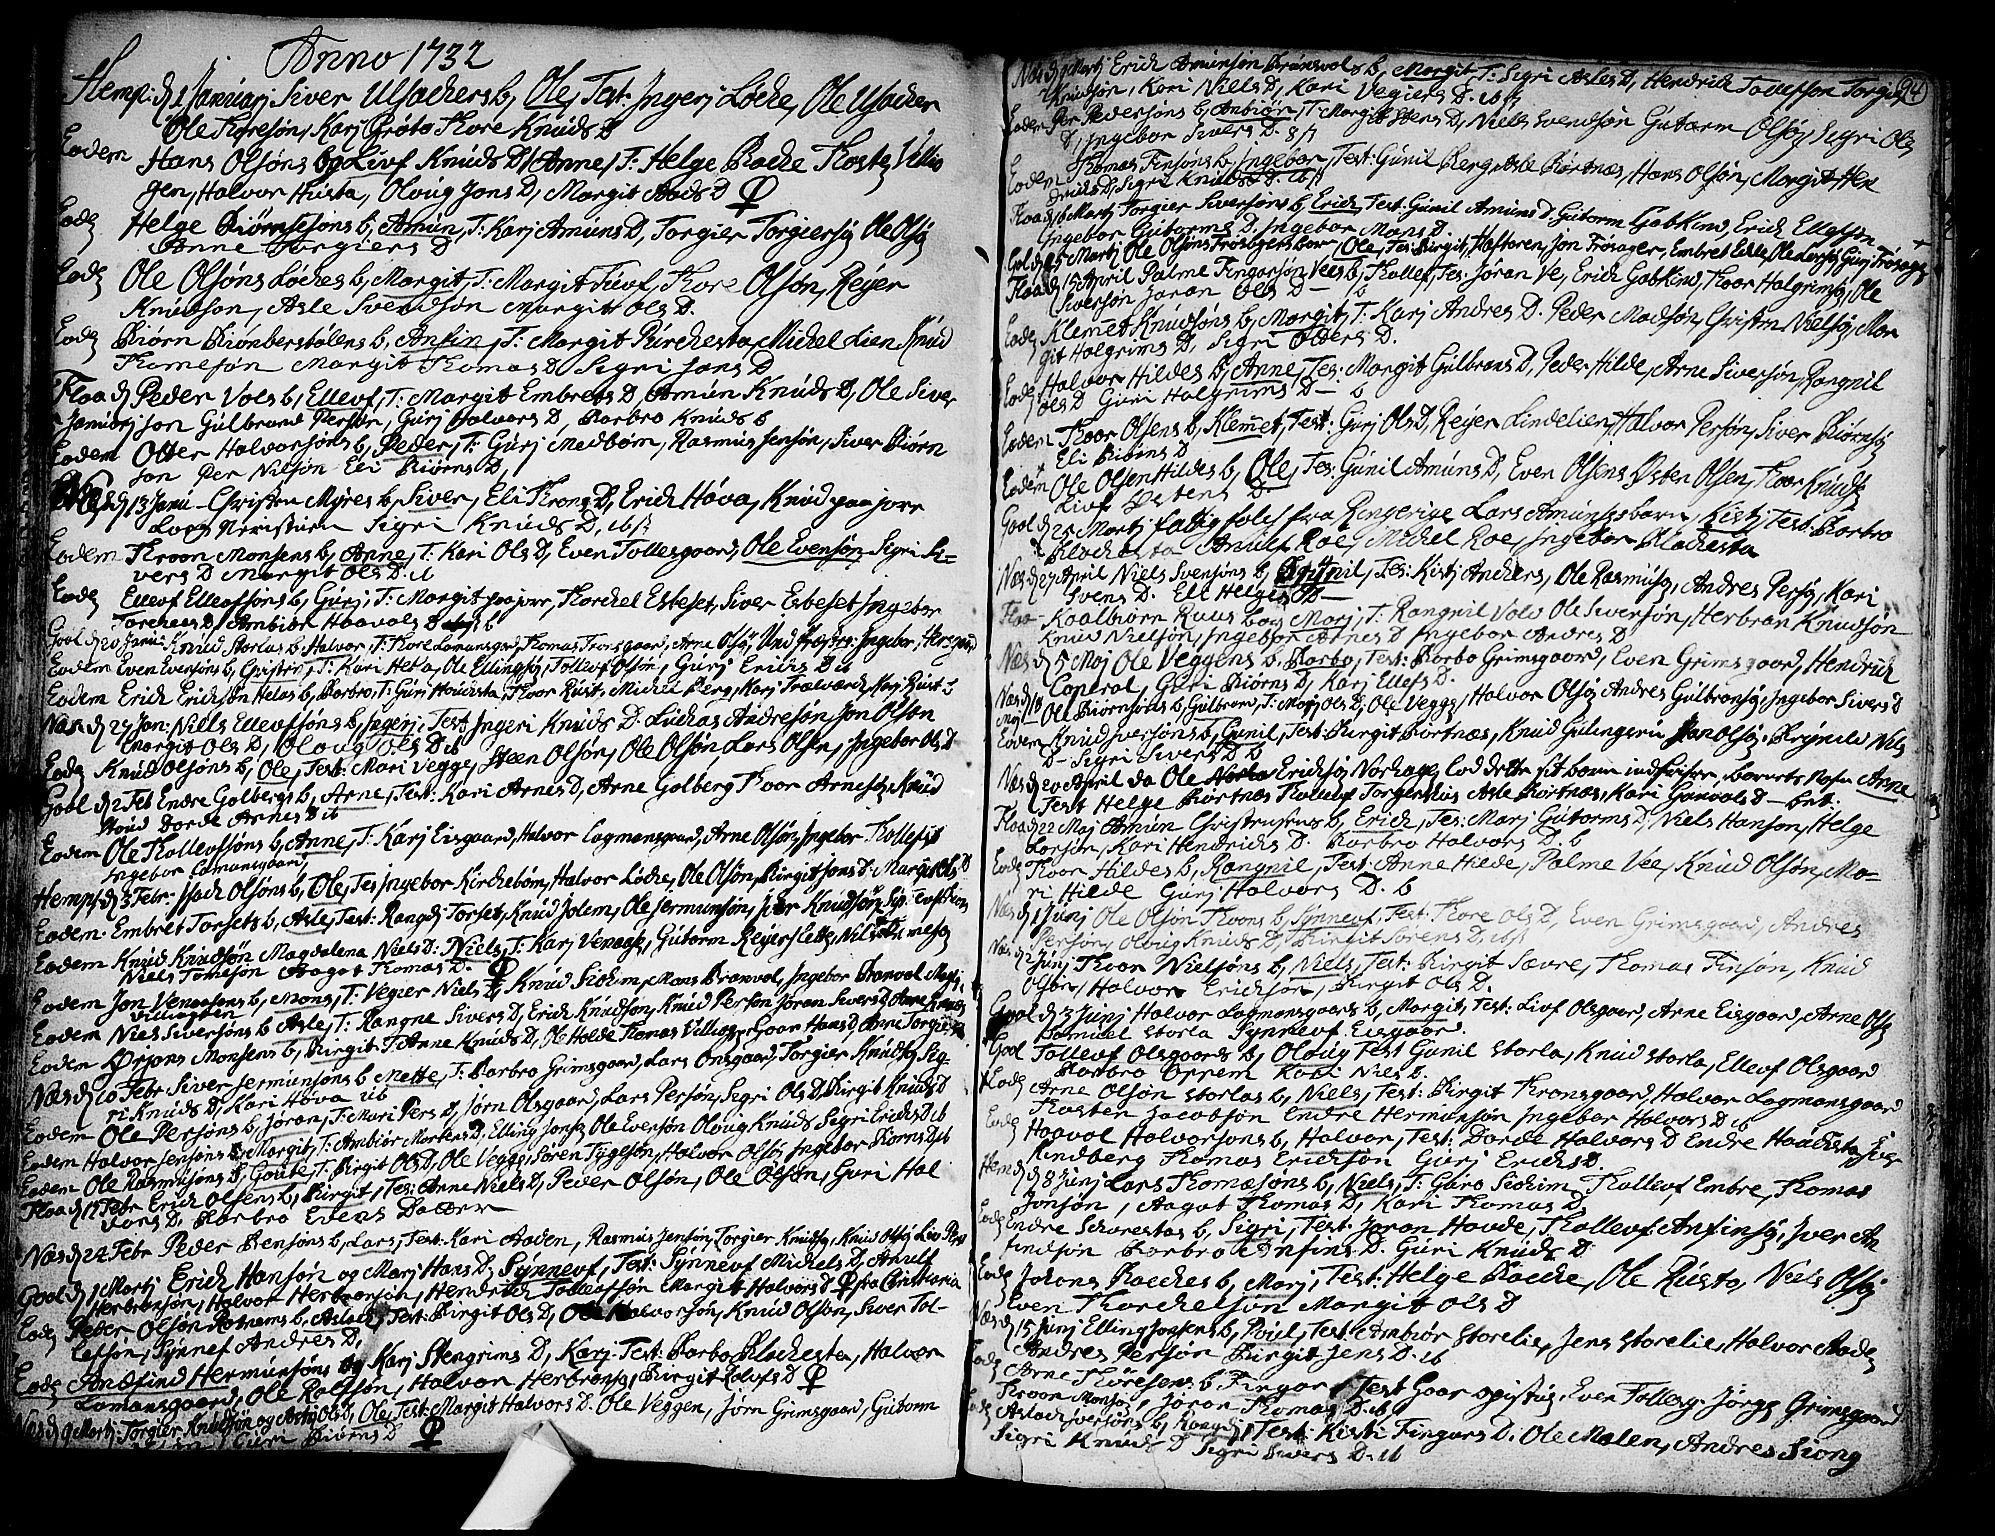 Anno 1732
Hemp. d. 1 Januarj Siver Ulsachers b, Ole, Test: Ingerj Løche, Ole Ulsacher
Ole Thoresøn, Karj Grøto Thore Knuds D
Eodem Hans Olsøns og Livf Knuds D Anne, T: Helge Bache Thoste Villio
gen, Halvor Husta, Oloug Jons D, Margit Aads D
Eod Helge Biørnsesøns b, Amun, T: Karj Amuns D, Torgier Torgiersø Ole Olsø
Anne Torgiers D
Eod Ole Olsøns Løches b, Margit, T: Margit Tufvf, Thore Olsøn, Reyer
Knudsøn, Asle Svendsøn Margit Ols D.
Eod Biørn Biørnberstølens b, Anfin, T: Margit Kirchesta, Michel Lien Knud
Thomesøn Margit Thomas D Sigri Jons D
Flaa d Peder Vols b, Ellevf, T: Margit Embrets D, Amun Knuds D, Ole Siver
Januarj Jon Gulbrand Persøn, Gurj Halvors D, Barbro Knuds D
Eodem Otter Halvorsøns b, Peder, T: Gurj Medbøm, Rasmus Jensøn, Siver Biørn
søn Per Nilsøn Eli Biørns D,
d 13 Janu - Christen Myres b, Siver, Eli Throns D, Erich Hova, Knud paa jorr
Sigri Knuds D, ib
Eodem Throon Monsens b, Anne, T: Kari Ols D, Even Tollesgaard, Ole Evensøn Sigri Si-
vers D Margit Ols D. ib
Eod Ellevf Ellevfsøns b, Gurj, T: Margit paa jorr, Thorchel Esbeset, Siver Esbeset Ingebor
Torchels D Ambiør Haavols D ib
Gool d 20 Janu: Knud Storlas b, Halvor, T: Thore Lamansgar, Thomas Tronsgaard, Arne Olsø
Eodem Even Evensøns b, Christen, T: Kari Heta, Ole Ellingsø, Tollevf Olsøn, Gurj Erichs D ib
Eodem Erich Erichsøn Helas b, Barbro, T: Guri Houchsta, Thoor Rust, Michel Berg, Karj Trælvard Karj Rust
Næs d 27 Jan: Niels Ellevfsøns b, Ingerj, Test Ingeri Knuds D. Luchas Andresøn, Jon Olsøn
Margit Ols D, Oloug Ols D ib
Eod Knud Olsøns b, Ole, Test: Mari Vegge, Steen Olsøn, Ole Olsøn, Lars Olsøn, Ingebor Ols D
Gool d 2 Feb Endre Golbergs b, Arne, Test: Kari Arnes D, Arne Golberg Thoor Arnesø, Knud
Dorde Arnes D ib
Eodem Ole Thollevfsøns b, Anne, T: Karj Eisgaard, Halvor Lagmansgaard, Arne Olsøn, Ingebor Thollefs D
Ingebor Lamansgaard,
Hemps d 3 Febr. Isach Olsøns b, Ole, Tes Ingebor Kirchebøm, Halvor Løche, Ole Olsøn, Birgit Jons D. Margit Ols D
Eodem. Embret Torsets b, Asle, Test: Rangd Torset, Knud Jolem, Ole Jermunsøn, Iver Knudsøn
Eodem Knud Knudsøn Magdalena Niels D: Niels, T: Karj Venaas, Gutorm Reyerslette,
Niels Tomesøn Aagot Thomas D.
Eodem Jon Venaasens b, Mons, T: Vegier Niels D, Knud Sichim, Mons Branvol, Ingebor Branvol
Eodem Niels Siversøns b Asle, T: Rangne Sivers D, Erich Knudsøn, Knud Persøn Jøran Sivers D
Eodem Ørjans Monsens b, Birgit, T: Anne Knuds D, Ole Holde Thomas Villiogen Goar Hans D, Anne Torgiers
Næs d 10 Febr Siver Jermunsøns b Mette, T: Barbro Grimsgaard, Lars Onsgaard, Torgier Knudsø, Sig
ri Knuds D, Kari Hova ib
Eodem Ole Persøns b, Jøran, T: Mari Pers D, Jørn Olsgaard, Lars Persøn, Sigri Ols D, Birgit Knuds D
Eodem Halvor Jensøns b, Margit, T: Ambiør Mortens D, Elling Jonsø, Ole Evensøn Oloug Knuds Sigri Erichs D ib
Eodem Ole Rasmusøns b, Goute, T: Birgit Ols D, Ole Vegge, Søren Tygesøn, Halvor Olsø, Ingebor Biørns D ib
Flaa d 17 Febr Erich Olsens b, Birgit, Tes: Anne Niels D, Peder Olsøn, Ole Olsøn, Guri Hal
vors D, Barbro Evens Datter
Næs d 24 Febr Peder Bensøns b, Lars, Test: Kari Aaden, Rasmus Jensøn, Torgier Knudsø, Knud Olsø, Liv Pers
Gool d 1 Martj Erich Hansøn og Marj Hans D. Synnevf, Test: Synnevf Michels D, Arnulf
Herbransøn, Halvor Herbransøn, Hendrich Tollevfsøn Margit Halvors D fra Christiania
Eod Peder Olsøn b, Aslak, Test: Birgit Ols D, Ole Halvorsøn, Knud Olsøn, Siver Tol-
lefsøn, Synnef Andres D,
Eod Andfind Hermunsøns og Karj Stengrims D, Karj. Test: Barbo Blachesta, Halvor
Lamansgaard, Ole Rolfsøn, Halvor Herbransø, Birgit Rolvfs D
Næs d 9 Martj Torgier Knudsøn og Ols D, Ole, Test: Margit Halvors D. Ole Veggen, Jørn Grimsgaard, Gutorm
Guri Biørns D
94
Næs d Martj Erich Amunsøn Bransvols b, Margit, T: Sigri Asles D, Hendrich Tovessøn Torgier
Knudsøn, Kari Niels D, Kari Vegiers D. ib
Eodem Per Pedersøns b, Anbiør, T: Margit Stens D, Niels Svendsøn Gutorm Olsø, Sigri Ols
D, Ingebor Sivers D.
Eodem Thomas Finsøns b, Ingebor, Test: Gunil Berg, Asle Børtnæs, Hans Olsøn, Margit Hen
drichs D, Sigri Knuds D. ib
Flaa d 16 Martj Torgier Siversøns b, Erich, Test: Gunil Amuns D. Gutorm Gabkind, Erich Ellefsøn
Ingebor Gutorms D. Ingebor Mons D.
Gol d 25 Martj Ole Olsøns Frøsagets barn, Ole, Tes: Birgit Haftoren, Jon Frøsager, Embret Eche, Ole Larsø, Gurj Frøsag
Flaa d 15 April Palme Fingarsøn Vees b, Thollef, Tes: Jøran Ve, Erich Gabkind, Thoor Halgrimsø, Ole
Siversøn Jøran Ols D - b
Eod Klemet Knudsøns b, Margit, T: Karj Andres D. Peder Madsøn, Christen Nielsø, Mar
git Halgrims D, Sigri Otters D.
Eod Halvor Hildes b, Anne, Tes: Margit Gulbrans D, Peder Hilde, Arne Siversøn, Rangnil
Ols D Guri Halgrims D - b
Eodem Thoor Olsens b, Klemet, Test: Gurj Ols D, Reyer Lindelien, Halvor Persøn, Siver Biørnsø
Eli Biørns D
Eodem Ole Olsen Hildes b, Ole, Tes: Gunil Amuns D, Even Olsens Østen Olsen, Thoor Knuds
Livf Østens D.
Gool d 25 Martj fattigfolch fra Ringerige Lars Amunssbarn, Kisti, Test: Barbro
Blachesta Arnulf Roe, Michel Roe, Ingebor Blachesta
Næs d 27 April Niels Svensøns b, Gunil, Tes: Kisti Anders, Ole Rasmusø, Andres Persø, Kari
Svens D. Eli Helges D -
Flaa - Kaalbiørn Ruus barn Marj, T: Rangnil Vols Ole Siversøn, Herbran Knudsøn
Knud Nielsøn, Ingebor Arnes D Ingebor Andres D
Næs d 5 Maj Ole Veggens b, Barbo, Test: Barbo Grimsgaard, Even Grimsgaard, Hendrich
Coperal, Guri Biørns D, Karj Ellefs D.
Næs d 18 Maj Ole Biørnsøns b, Gulbrand, T: Marj Ols D, Ole Vegge, Halvor Olsø Andres Gulbransø, Ingebor Sivers D
Eodem Knud Iversøns b, Gunil, Test: Birgit Børtnæs, Knud Gulingerud Jon Olsø, Brynild Nils
D - Sigri Sivers D b
Næs d 20 April da Ole Erichsø, Norhage, lod dette sit barn indskrive, Barnets Nafn Anne
Test Helge Børtnæs Thollevf Torgershus Asle Børtnæs, Kari Gunvols D - bet.
Flaa d 22 Maj Amun Christensens b, Erich, Tes: Marj Gutorms D, Niels Hansøn, Helge
Larsøn, Kari Hendrichs D. Barbro Halvors D. b
Eod Thoor Hildes b, Rangnil, Test: Anne Hilde, Palme Vee, Knud Olsøn, Ma-
ri Hilde Gurj Halvors D. b
Næs d 1 Junj Ole Olsøn Thoons b, Synnevf, Test: Thore Ols D, Even Grimsgaard, Andres
Persøn, Oloug Knuds D, Birgit Sørens D, ib
Næs d 2 Junj Thoor Nielsøns b, Niels, Test: Birgit Sævre, Thomas Finsøn, Knud
Olsøn, Halvor Erichsøn, Birgit Ols D.
Gool d 3 Junj Halvor Lagmansgaards b, Margit, Test: Livf Olsgaar, Arne Eisgaard, Arne Olsø
Samuel Storla Synnevf Eisgaar
Gool Tollevf Olsgaards b, Oloug Test Gunil Storla, Knud Storla, Ellevf Olsgaard
Barbro Oppem Kari Niels D.
Eod Arne Olsøn Storlas b, Niels, Test: Birgit Thronsgaard, Halvor Lagmansgaard
Thosten Jacobsøn Endre Hermunsøn Ingebor Halvors D ib
Eod Haavol Halvorsøns b, Halvor, Test: Dorde Halvors D Endre Houchsta, Siver
Rindberg Thomas Erichsøn Gurj Erichs D.
Hem d 8 Junj Lars Thomæsøns b, Niels, T: Guro Sichim Thollevf Embre, Thomas
Jonsøn, Aagot Thomas D, Kari Thomas D,
Eod Endre Schorestas b, Sigri, Test: Jøran Hovde, Thollevf Anfinsø, Iver An
findsøn Barbro Anfins D. Guri Knuds D
Eod Johans Bachehs b, Marj, Test: Helge Bache, Ole Rusto, Niels Olsø
Even Thorchelsøn Margit Ols D
Næs d 15 Junj Elling Jonsens b, Poul, Test: Ambiør Storelie, Jens Storelie, Halvor Aaden
Andres Persøn Birgit Jens D. ib
Eod Arne Thoresens b, Fingar, Test Goar opistue, Even Tollesg. Jørge Grimsgaard
Throon Monsø, Jøran Thomas D. ib
Eod Aslach Iversøns b, Rangdi, Test: Kisti Fingars D. Ole Molen, Andres Siong
Sigri Knuds D Sigri Sivers D. ib